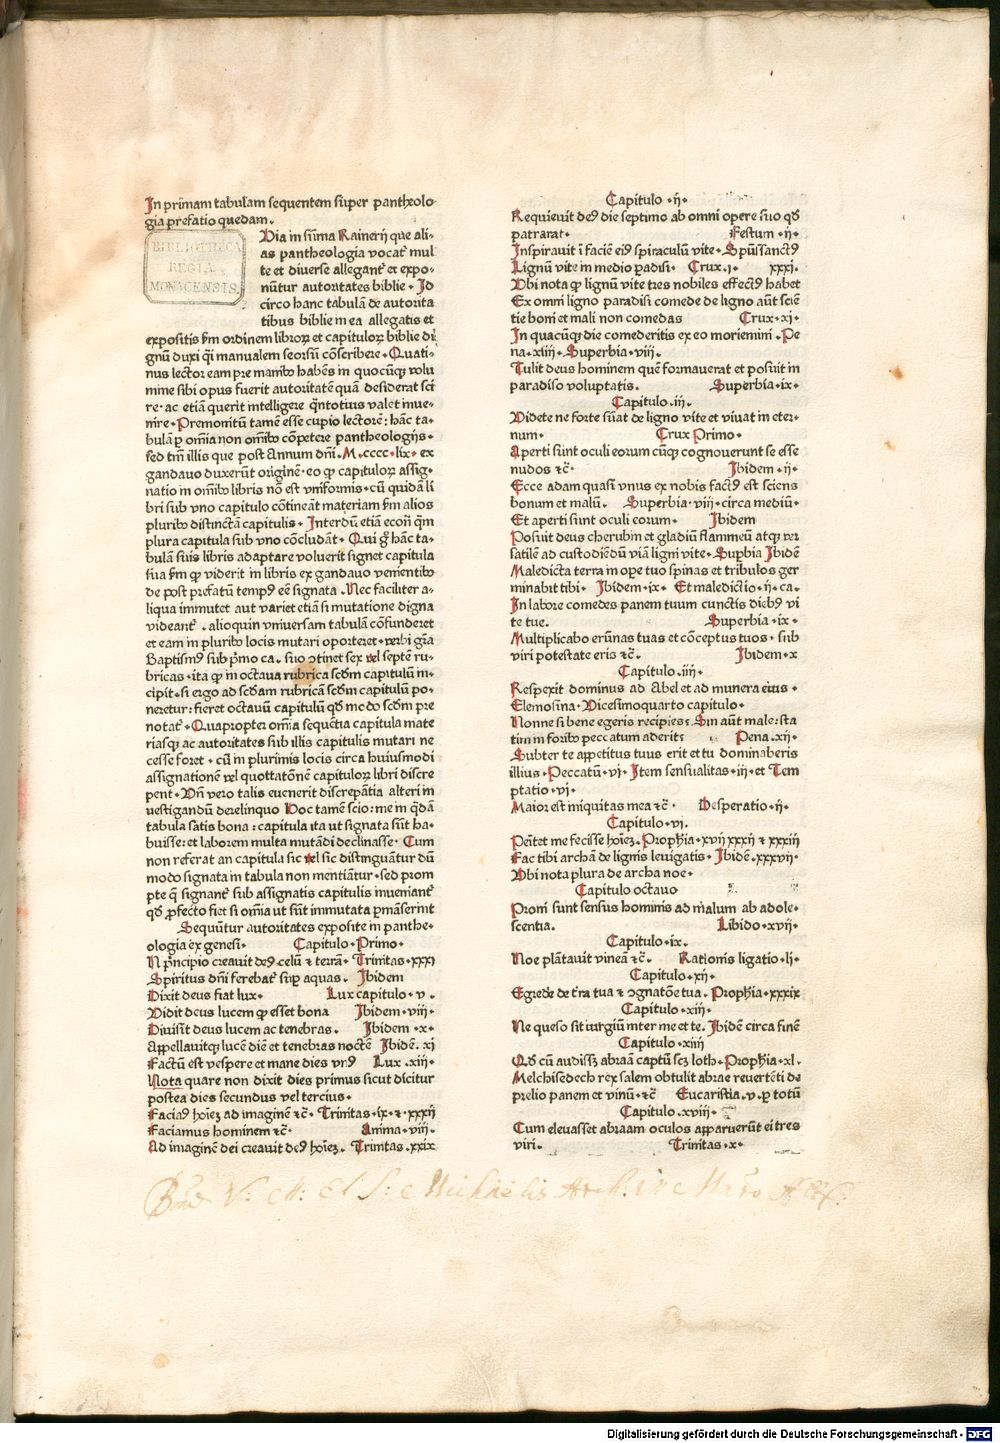 In primam tabulam sequentem super pantheolo-
gia prefatio quedam.
Uia in sūma Rainerij que ali-
as pantheologia vocat᷑ mul
te et diuerse allegant᷑ et expo-
nūtur autoritates biblie. Id
circo hanc tabulā de autorita
tibus biblie in ea allegatis et
expositis ſm ordinem libroꝝ et capituloꝝ biblie di
gnū duxi q̄i manualem seorsū cōscribere. Quati-
nus lector eam pre manibꝰ habēs in quocūqꝫ volu
mine sibi opus fuerit autoritatē quā desiderat sci
re. ac etiā querit intelligere q̄ntotius valet inue-
nire. Premonitū tamē esse cupio lectorē: hāc ta-
bulā ꝑ omīa non omībꝰ cōpetere pantheologijs.
sed tm̄ illis que post Annum dn̄i. M. cccc. lix. ex
gandauo duxerūt originē. eo ꝙ capituloꝝ assig-
natio in omībꝰ libris nō est vniformis. cū quidā li
bri sub vno capitulo cōtineāt materiam ſm alios
pluribꝰ distinctā capitulis. Interdū etiā econ̄ q̄m
plura capitula sub vno cōcludāt. Qui gͦ hāc ta-
bulā suis libris adaptare voluerit signet capitula
sua ſm ꝙ viderit in libris ex gandauo venientibꝰ
de post prefatū tempꝰ eē signata. Nec faciliter a-
liqua immutet aut variet etiā si mutatione digna
videant᷑. alioquin vniuersam tabulā cōfunderet
et eam in pluribꝰ locis mutari oporteret. verbi grā
Baptismꝰ sub pͥmo ca. suo ↄtinet sex vel septē ru-
bricas. ita ꝙ in octaua rubrica scd̄m capitulū in-
cipit. si ergo ad scd̄am rubricā scd̄m capitulū po-
neretur: fieret octauū capitulū qd̄ modo scd̄m pre
notat᷑. Quapropter omīa sequētia capitula mate
riasqꝫ ac autoritates sub illis capitulis mutari ne
cesse foret. cū in plurimis locis circa huiusmodi
assignationē vel quottatōnē capituloꝝ libri discre
pent. Un̄ vero talis euenerit discrepātia alteri in
uestigandū derelinquo Hoc tamē scio: me in q̄dā
tabula satis bona: capitula ita ut signata sūt ha-
buisse: et laborem multa mutādi declinasse. Cum
non referat an capitula sic vel sic distinguātur dū
modo signata in tabula non mentiātur. sed prom
pte q̄ signant᷑ sub assignatis capitulis inueniant᷑
qd̄ ꝓfecto fiet si omīa ut sūt immutata ꝑmāserint
Sequūtur autoritates exposite in panthe-
ologia ex genesi. Capitulo. Primo.
N pͥncipio creauit deꝰ celū & terrā. Trinitas. xxxi
Spiritus dn̄i ferebat᷑ suꝑ aquas. Ibidem
Dixit deus fiat lux. Lux capitulo. v.
Uidit deus lucem ꝙ esset bona Ibidem. viij.
Diuisit deus lucem ac tenebras. Ibidem. x.
Appellauitqꝫ lucē diē et tenebras noctē Ibidē. xi
Factū est vespere et mane dies vnꝰ Lux. xiij.
Nota quare non dixit dies primus sicut dicitur
postea dies secundus vel tercius.
Faciaꝰ hoīez ad imaginē &c̄. Trinitas. ix. & xxxij
Faciamus hominem &c̄. Anima. viij.
Ad imaginē dei creauit deꝰ hoīez. Trinitas. xxix
Capitulo. ij.
Requieuit deꝰ die septimo ab omni opere suo qd̄
patrarat. Festum. ij.
Inspirauit ī faciē eiꝰ spiraculū vite. Spūssanctꝰ
Lignū vite in medio ꝑadisi. Crux. j. xxxi.
Ubi nota ꝙ lignū vite tres nobiles effectꝰ habet
Ex omni ligno paradisi comede de ligno aūt sciē
tie boni et mali non comedas Crux. xi.
In quacūqꝫ die comederitis ex eo moriemini. Pe
na. xiiij. Superbia. viij.
Tulit deus hominem quē formauerat et posuit in
paradiso voluptatis. Superbia. ix.
Capitulo. iij.
Uidete ne forte sūat de ligno vite et viuat in eter-
num. Crux Primo.
Aperti sunt oculi eorum cūqꝫ cognouerunt se esse
nudos &c̄. Ibidem. ij.
Ecce adam quasi vnus ex nobis factꝰ est sciens
bonum et malū. Superbia. viij. circa mediū.
Et aperti sunt oculi eorum. Ibidem
Posuit deus cherubin et gladiū flammeū atqꝫ ver
satilē ad custodiēdū viā ligni vite. Suꝑbia Ibidē
Maledicta terra in oꝑe tuo spinas et tribulos ger
minabit tibi. Ibidem. ix. Et maledictio. ij. ca.
In labore comedes panem tuum cunctis diebꝰ vi
te tue. Superbia. ix.
Multiplicabo erūnas tuas et cōceptus tuos. sub
viri potestate eris &c̄. Ibidem. x
Capitulo. iiij.
Respexit dominus ad Abel et ad munera eius.
Elemosina. Uicesimoquarto capitulo.
Nonne si bene egeris recipies: Sin aūt male: sta
tim in foribꝰ peccatum aderit: Pena. xij.
Subter te appetitus tuus erit et tu dominaberis
illius. Peccatū. vi. Item sensualitas. iij. et Tem
ptatio. vi.
Maior est iniquitas mea &c̄. Desperatio. ij.
Capitulo. vi.
Penitet me fecisse hoīez. Prophīa. xvij xxxij & xxxiij
Fac tibi archā de lignis leuigatis. Ibidē. xxxvij.
Ubi nota plura de archa noe.
Capitulo octauo
Proni sunt sensus hominis ad malum ab adole-
scentia. Libido. xvij.
Capitulo. ix.
Noe plātauit vineā &c̄. Rationis ligatio. lj.
Capitulo. xij.
Egrede de t̄ra tua & ↄgnatōe tua. Prophīa. xxxix
Capitulo. xiij.
Ne queso sit iurgiū inter me et te. Ibidē circa finē
Capitulo. xiiij
Qd̄ cū audissꝫ abraā captū scꝫ loth. Prophīa. xl.
Melchisedech rex salem obtulit abrae reuertēti de
prelio panem et vinū. &c̄ Eucaristia. v. ꝑ totū
Capitulo. xviij.
Cum eleuasset abraam oculos apparuerūt ei tres
viri. Trinitas. x.
BIBLIOTHECA
REGIA
MONACENSIS.
Digitalisierung gefördert durch die Deutsche Forschungsgemeinschaft - DFG